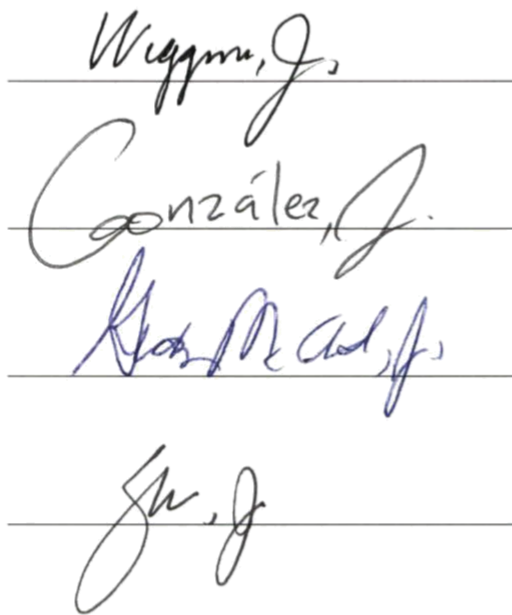 Wiggins, J.
González, J.
Gordon McCloud, J.
Yu, J.